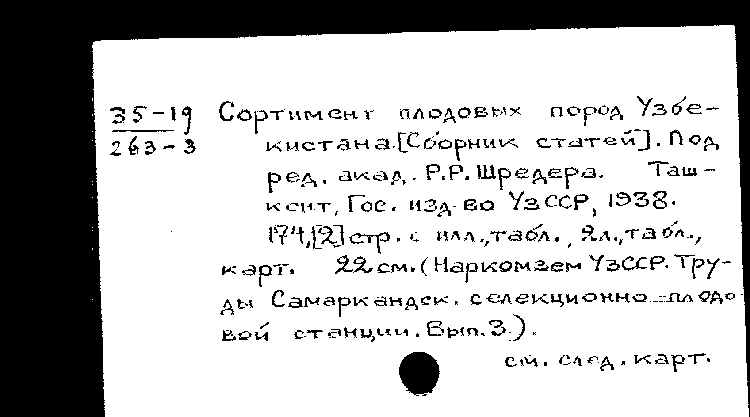 35-19 Сортимент плодовых пород Узбе-
263-3 кистана.[Сборник статей]. Под
ред. акад. Р.Р. Шредера. Таш-
кент, Гос. изд-во УзССР, 1938.
174,[2] стр. с илл., табл., 2л., табл.,
карт. 22 см. (Наркомзем УзССР. Тру-
ды Самаркандск. селекционно-плодо
вой станции. Вып. 3.).
см. след. карт.